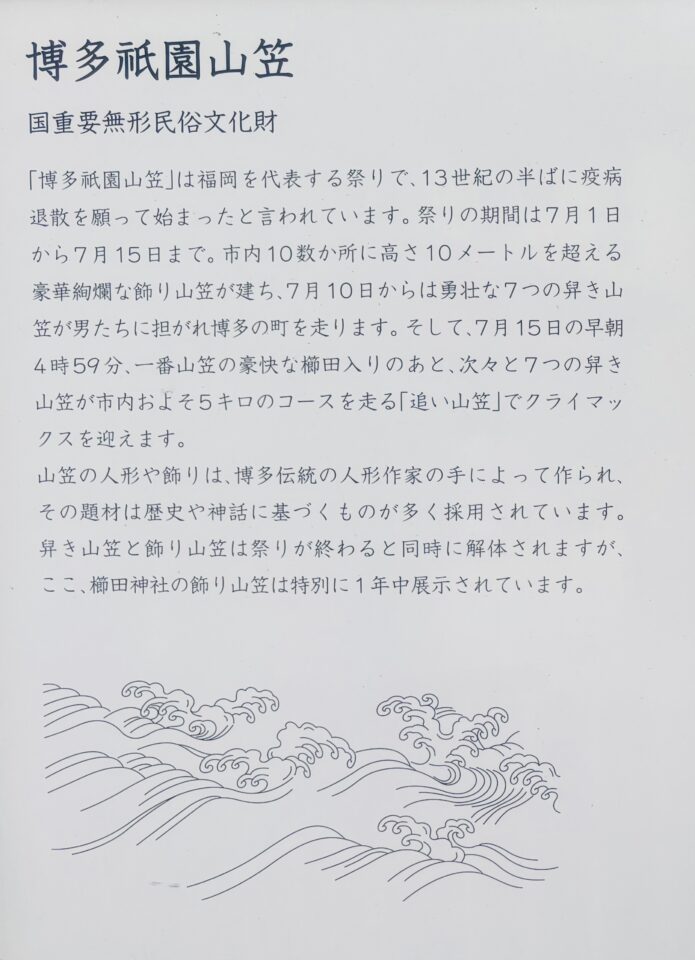 博多祇園山笠
国重要無形民俗文化財
「博多祇園山笠」は福岡を代表する祭りで、13世紀の半ばに疫病
退散を願って始まったと言われています。祭りの期間は7月1日
から7月15日まで。市内10数か所に高さ10メートルを超える
豪華絢爛な飾り山笠が建ち、7月10日からは勇壮な7つの舁き山
笠が男たちに担がれ博多の町を走ります。そして、7月15日の早朝
4時59分、一番山笠の豪快な櫛田入りのあと、次々と7つの舁き
山笠が市内およそ5キロのコースを走る「追い山笠」でクライマッ
クスを迎えます。
山笠の人形や飾りは、博多伝統の人形作家の手によって作られ、
その題材は歴史や神話に基づくものが多く採用されています。
舁き山笠と飾り山笠は祭りが終わると同時に解体されますが、
ここ、櫛田神社の飾り山笠は特別に1年中展示されています。